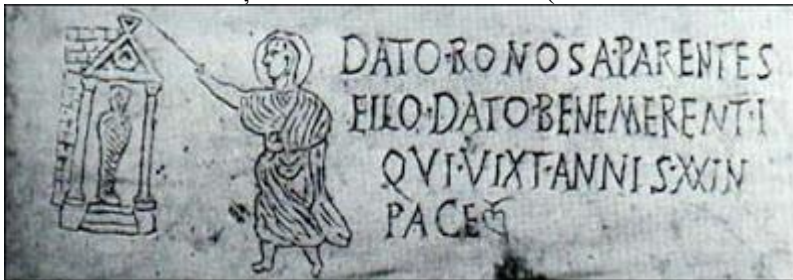 DATO·RONOSA·PARENTES
FILO·DATO·BENEMERENTI
QVI·VIXT·ANNIS·XXIN
PACE